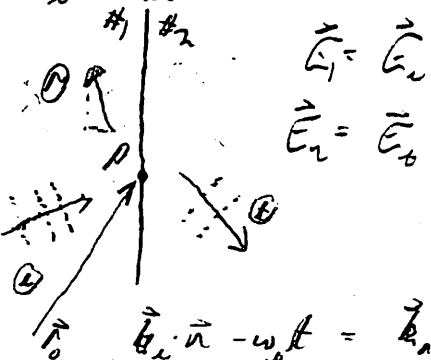 #1 #2
E⃗₁ = E⃗ᵢ
ⓡ
E⃗₂ = E⃗ₜ
P
ⓣ
ⓘ
r⃗₀ k⃗ᵢ · r⃗ - ωᵢt = k⃗ᵣ